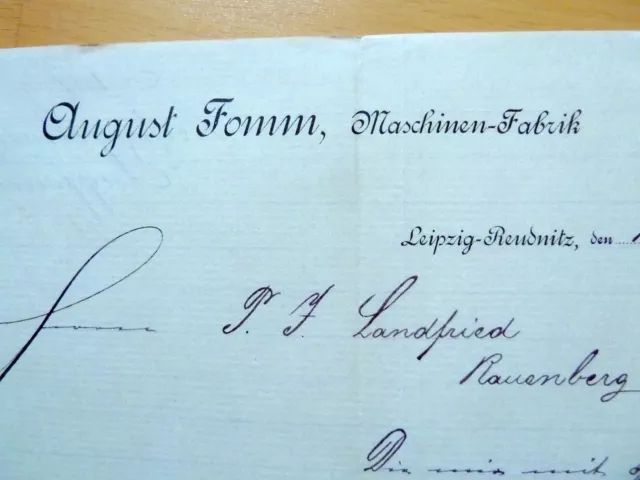 August Fomm, Maschinen-Fabrik
Leipzig-Reudnitz, den
Herrn P. J. Landfried
Rauenberg
Die mir mit